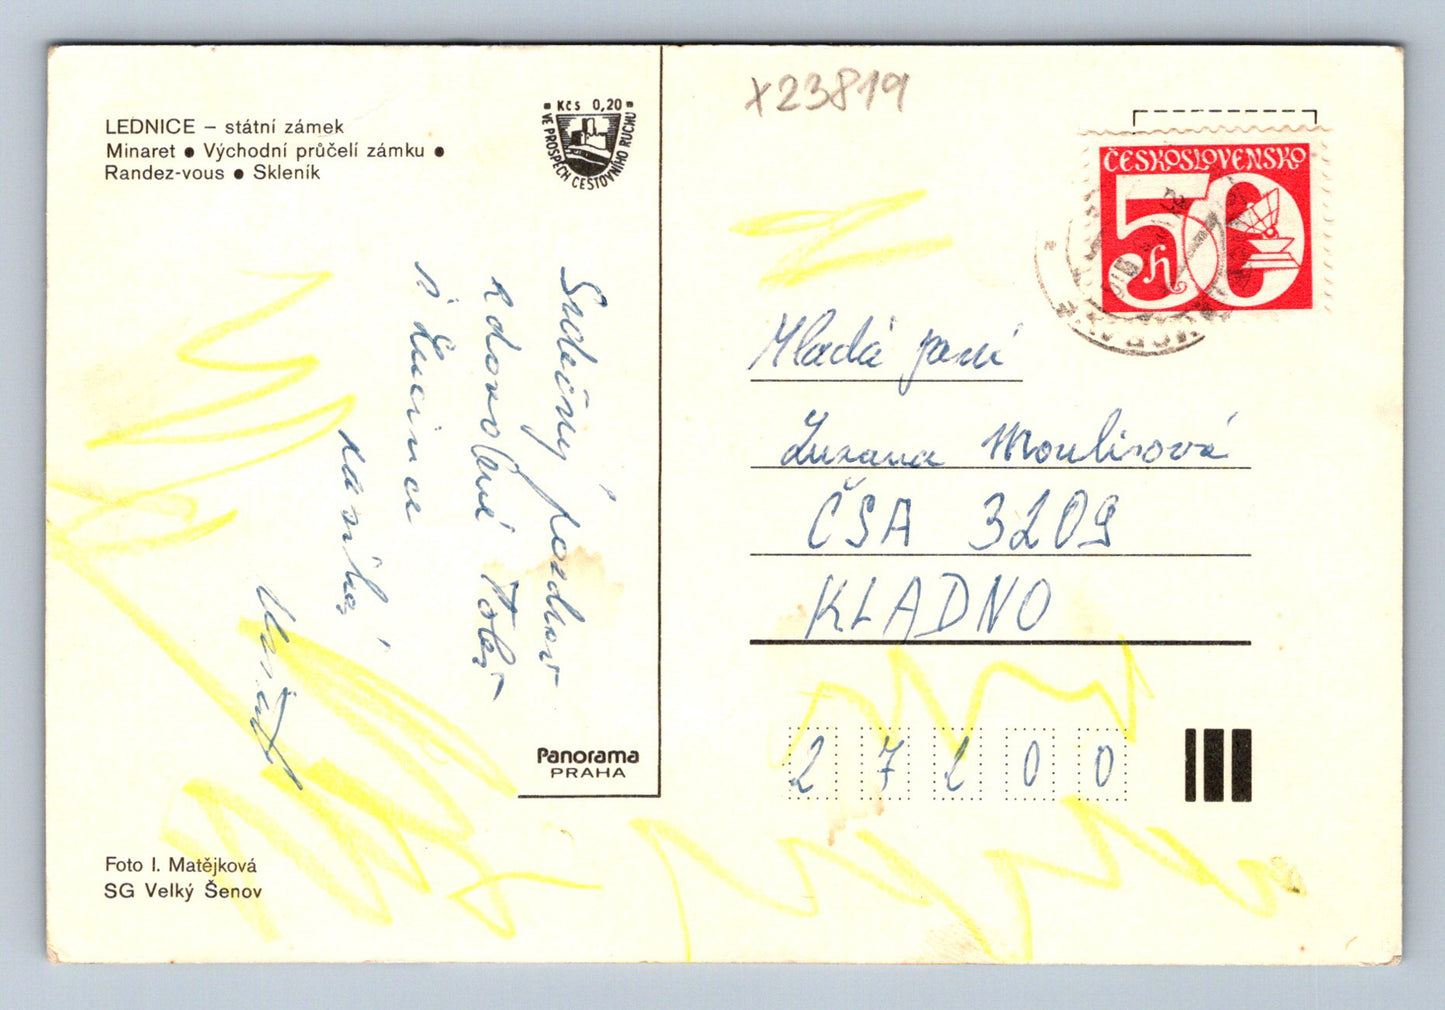 LEDNICE – státní zámek
Minaret ● Východní průčelí zámku ●
Randez-vous ● Skleník
Kčs 0,20
VE PROSPĚCH CESTOVNÍHO RUCHU
x23819
ČESKOSLOVENSKO
50 h
Srdečný pozdrav
z dovolené
s Lucince
zasílá,
Mladá paní
Zuzana Moulisová
ČSA 3209
KLADNO
27200
Panorama
PRAHA
Foto I. Matějková
SG Velký Šenov